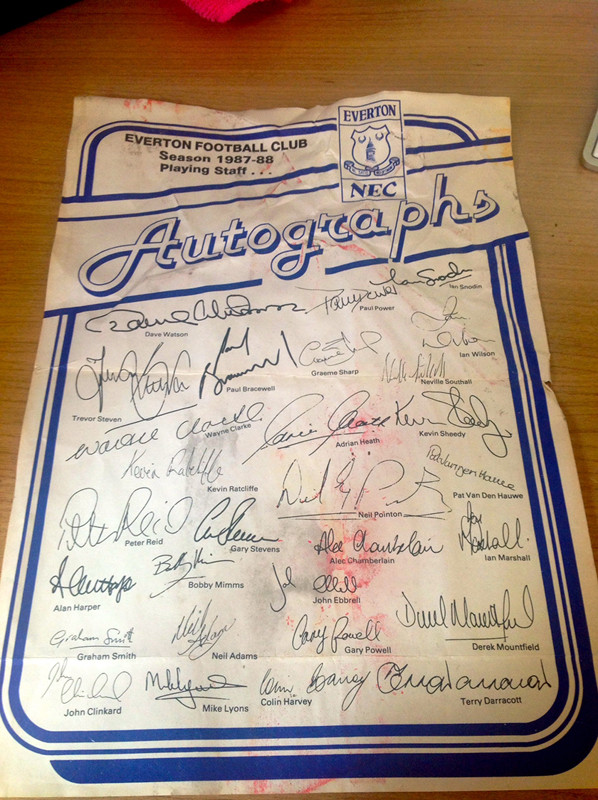 EVERTON FOOTBALL CLUB
Season 1987-88
Playing Staff . . .
EVERTON
NEC
Autographs
Ian Snodin
Paul Power
Dave Watson
Ian Wilson
Graeme Sharp
Neville Southall
Paul Bracewell
Trevor Steven
Wayne Clarke
Adrian Heath
Kevin Sheedy
Kevin Ratcliffe
Pat Van Den Hauwe
Neil Pointon
Peter Reid
Gary Stevens
Alec Chamberlain
Ian Marshall
Alan Harper
Bobby Mimms
John Ebbrell
Derek Mountfield
Graham Smith
Neil Adams
Gary Powell
John Clinkard
Mike Lyons
Colin Harvey
Terry Darracott